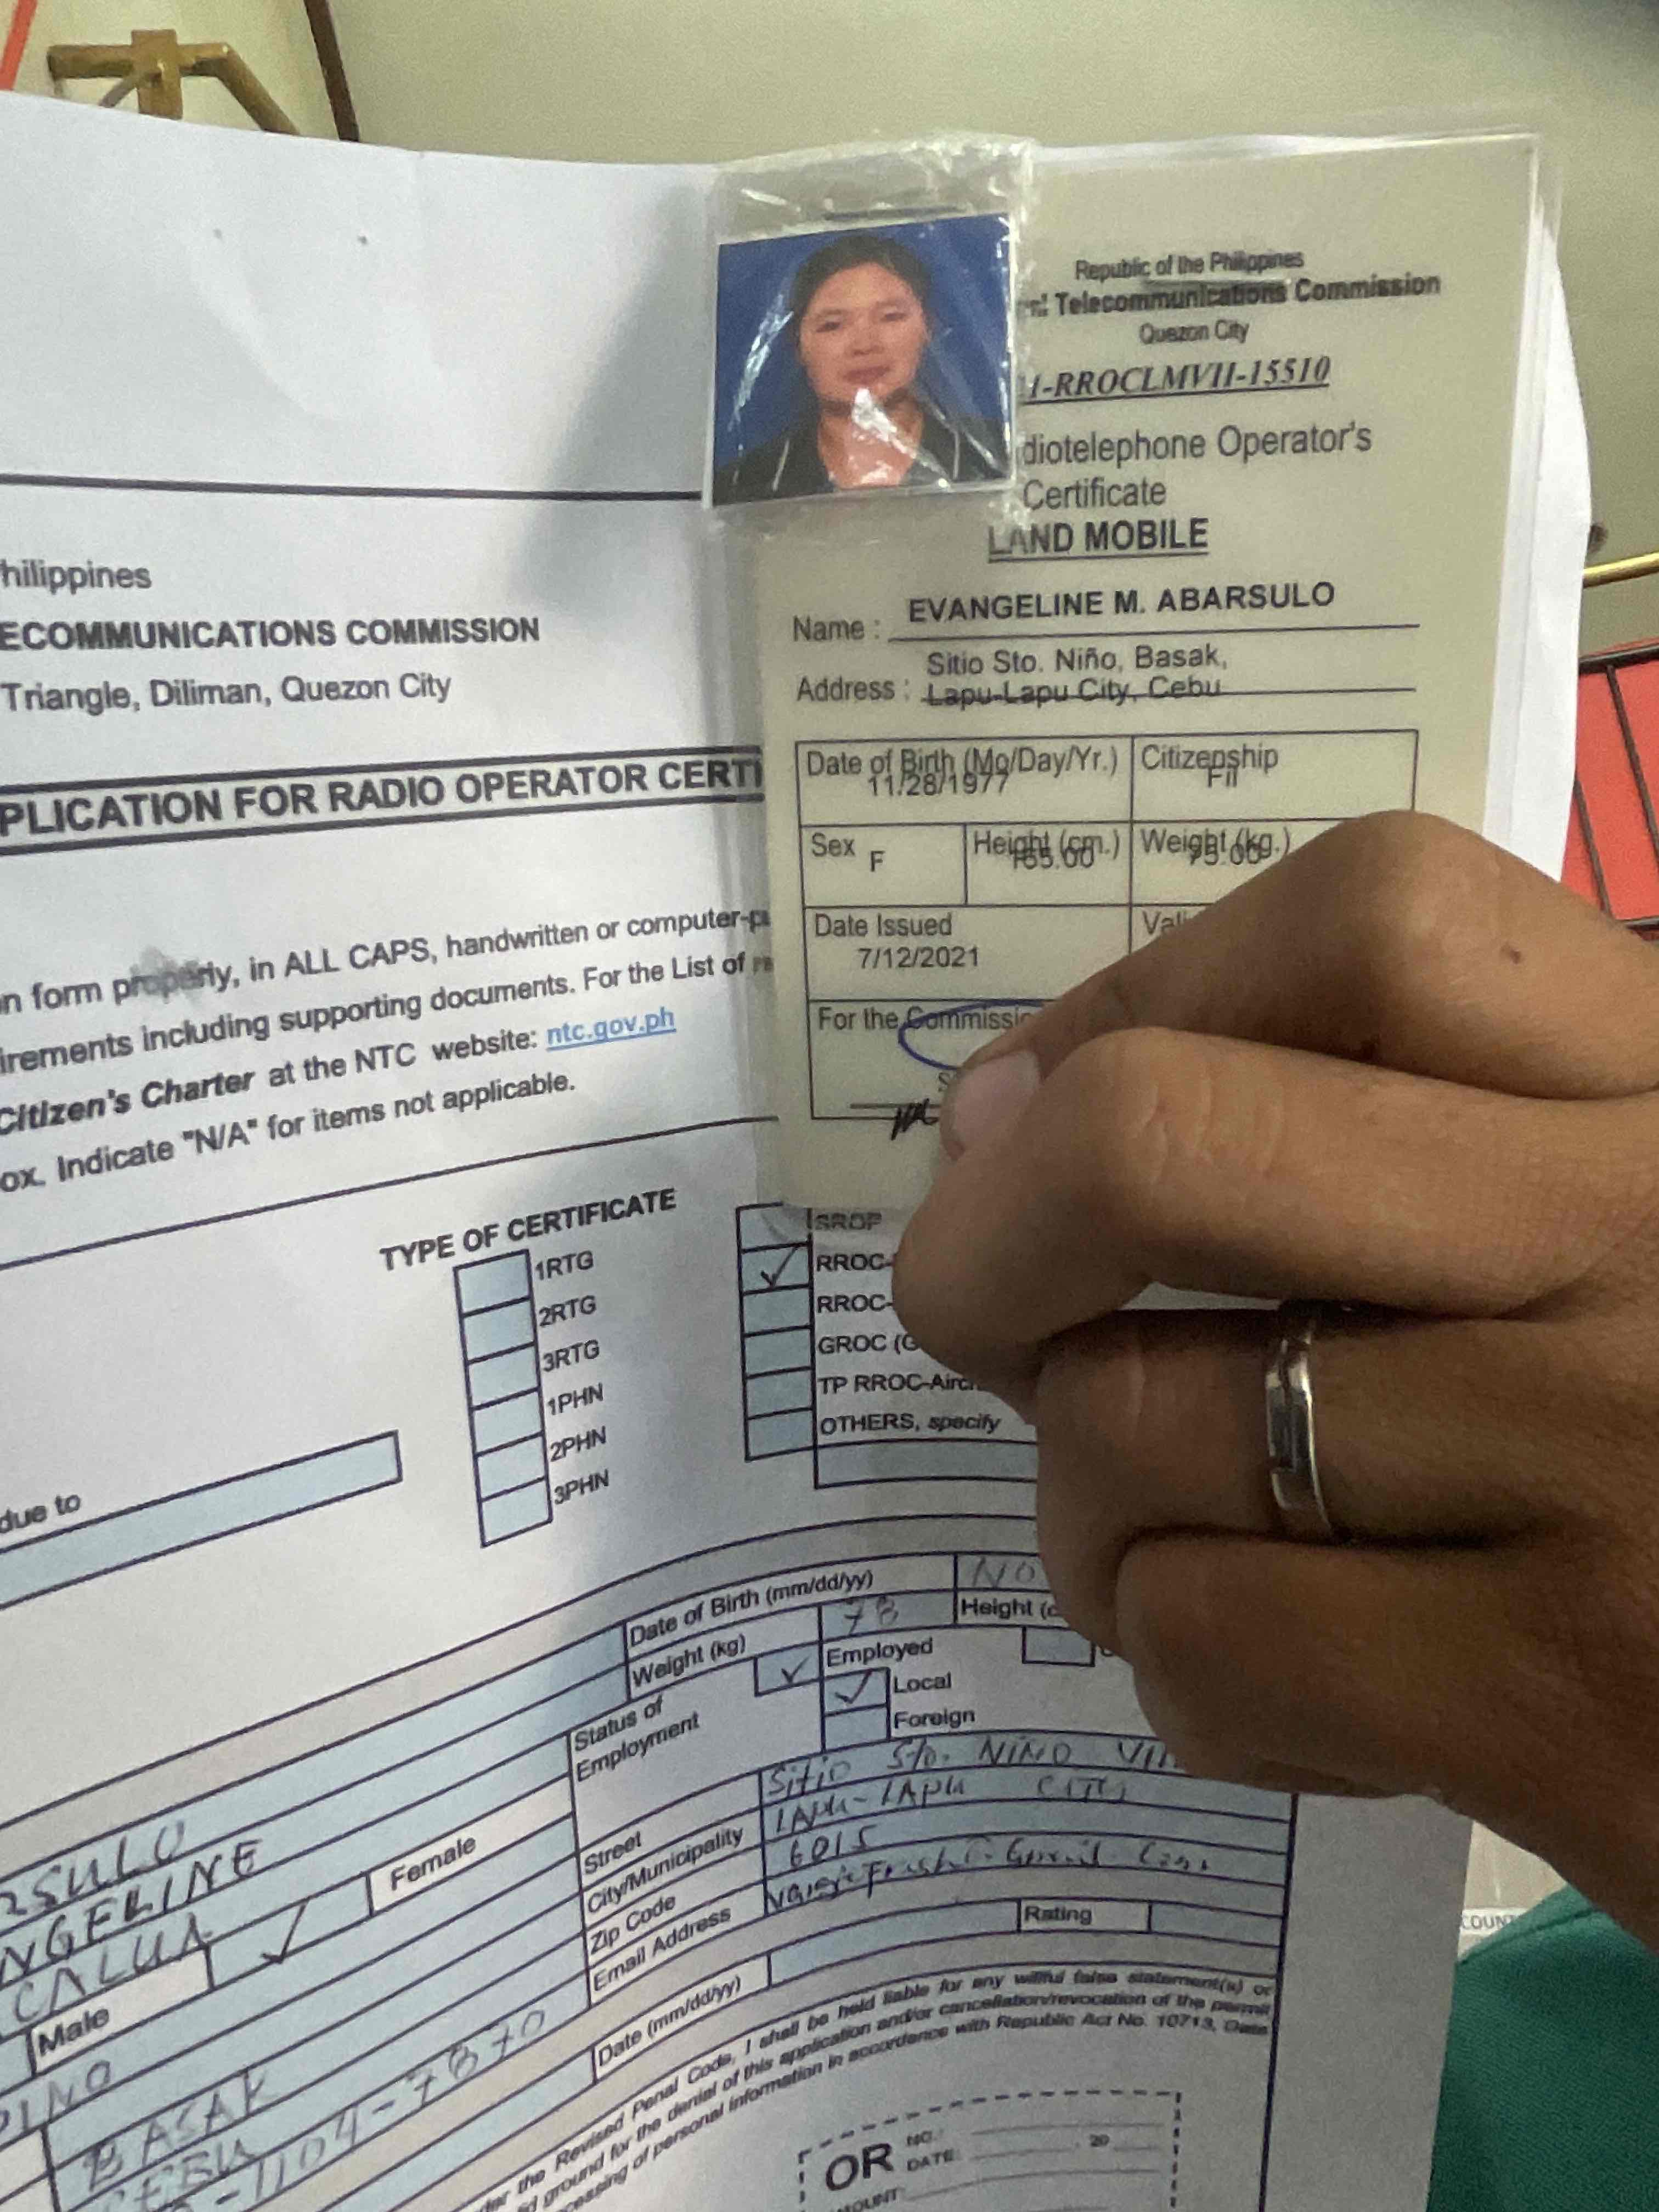 Republic of the Philippines
Telecommunications Commission
Quezon City
1-RROCLMVII-15510
diotelephone Operator's
Certificate
LAND MOBILE
Name : EVANGELINE M. ABARSULO
Address : Sitio Sto. Niño, Basak,
Lapu-Lapu City, Cebu
Date of Birth (Mo/Day/Yr.) Citizenship
11/28/1977 Fil
Sex F Height (cm.) Weight (kg.)
165.00 75.00
Date Issued
7/12/2021
For the Commissio
hilippines
ECOMMUNICATIONS COMMISSION
Triangle, Diliman, Quezon City
PLICATION FOR RADIO OPERATOR CERTI
n form properly, in ALL CAPS, handwritten or computer-p
irements including supporting documents. For the List of
Citizen's Charter at the NTC website: ntc.gov.ph
ox. Indicate "N/A" for items not applicable.
TYPE OF CERTIFICATE
1RTG
2RTG
3RTG
1PHN
2PHN
3PHN
SROP
RROC-
RROC-
GROC (G
TP RROC-Aircr
OTHERS, specify
due to
Date of Birth (mm/dd/yy) NO
Weight (kg) 78 Height (c
Status of
Employment
Employed
Local
Foreign
Street Sitio Sto. NINO
City/Municipality LAPU-LAPU CITY
Zip Code 6015
Email Address
RSULO
NGELINE
CALUA
Male
Female
PINO
BASAK
CEBU
-1104-7870
Date (mm/dd/yy)
Rating
der the Revised Penal Code, I shall be held liable for any willful false statement(s) or
id ground for the denial of this application and/or cancellation/revocation of the permit
cessing of personal information in accordance with Republic Act No. 10713, Data
OR NO.:
DATE: 20
MOUNT:
COUNT